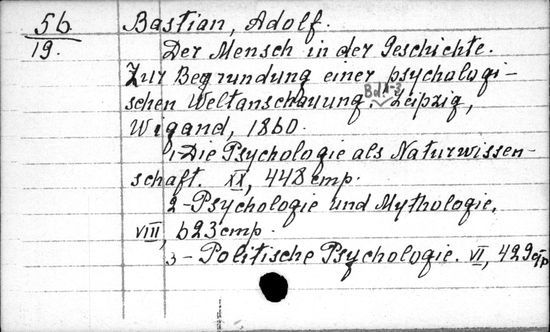 56
19.
Bastian, Adolf.
Der Mensch in der Geschichte.
Zur Begrundung einer psychologi-
schen Weltanschauung. Bd 1-3 Leipzig,
Wigand, 1860.
1-Die Psychologie als Naturwissen-
schaft. XX, 448 cmp.
2-Psychologie und Mythologie,
VIII, 623 cmp.
3-Politische Psychologie. VI, 429 cmp